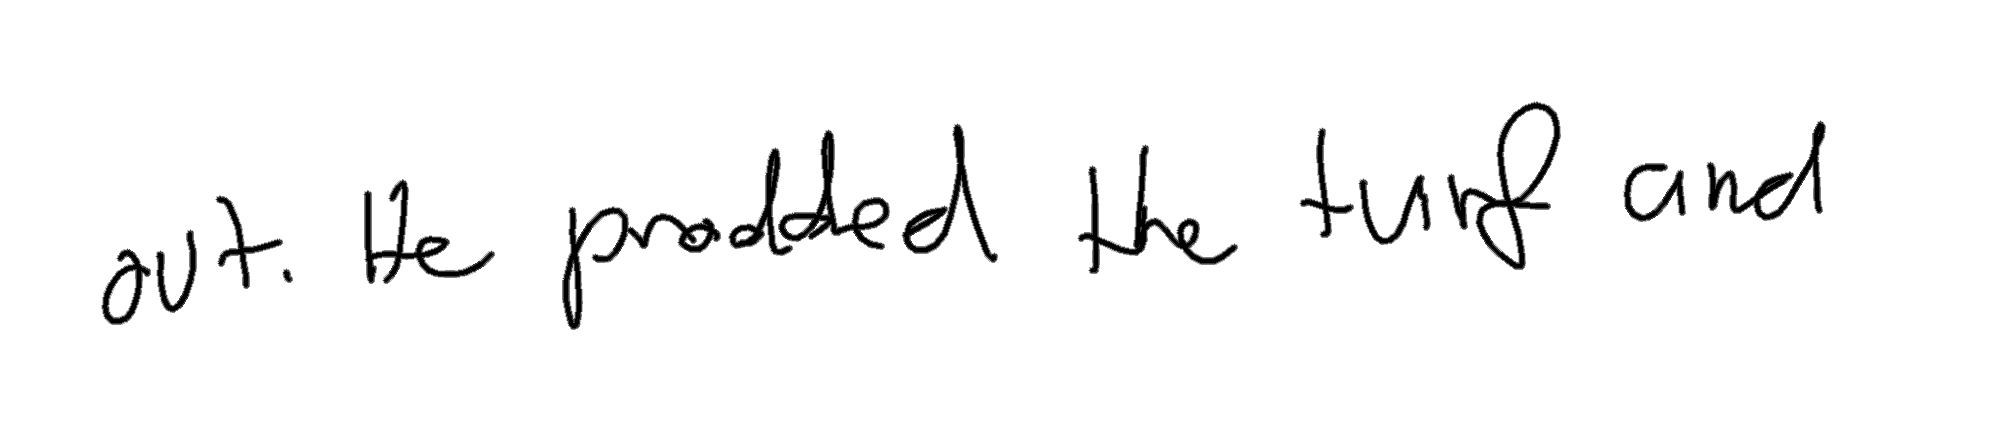 out. He prodded the turf and